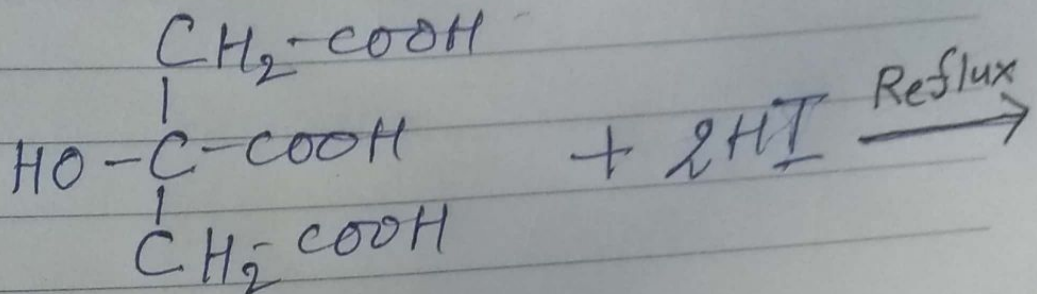 CH₂-COOH
|
HO-C-COOH + 2HI Reflux →
|
CH₂-COOH